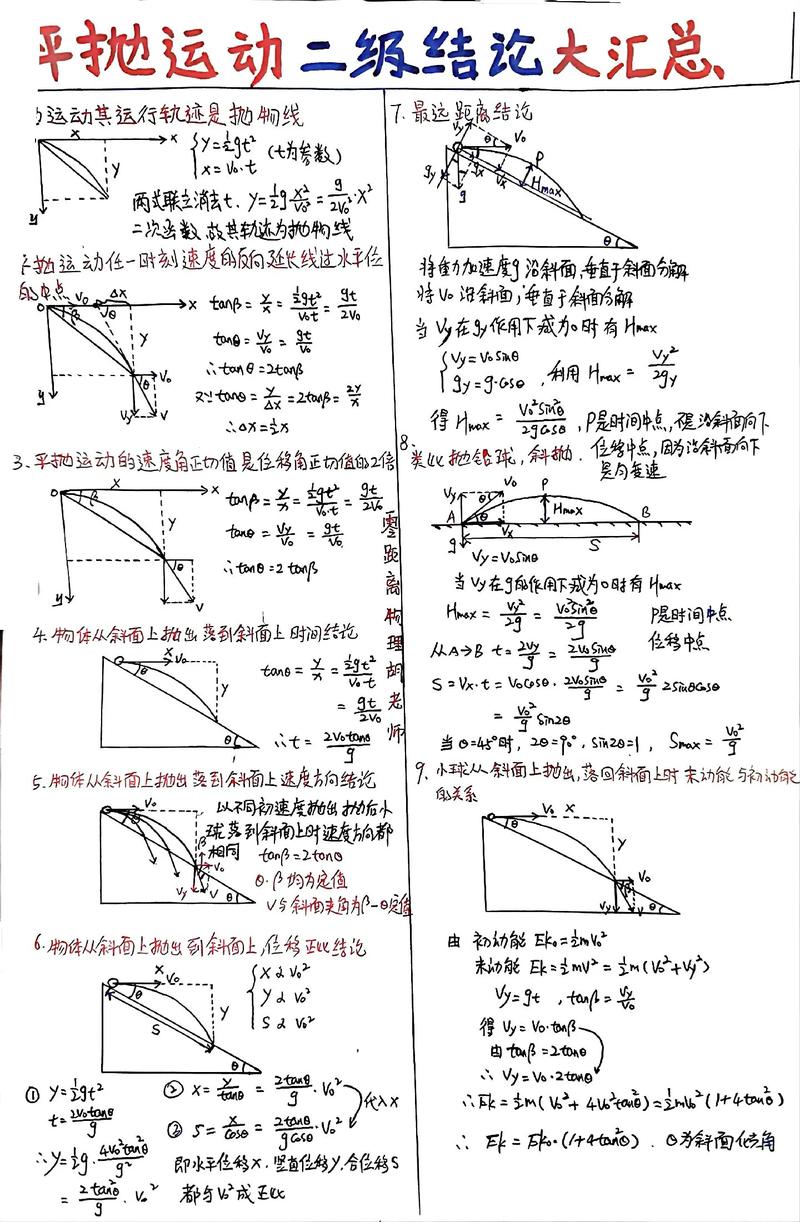 平抛运动二级结论大汇总、
运动其运行轨迹是抛物线
x
x
y
y
{ y=½gt²
x=v₀·t (t为参数)
两式联立消去t. y=½g x²/v₀² = g/2v₀² · x²
二次函数 故其轨迹为抛物线
抛运动任一时刻速度的反向延长线过水平位
的中点
O β v₀ Δx x
θ
y
θ v₀
y vy v
tanβ = y/x = ½gt²/v₀t = gt/2v₀
tanθ = vy/v₀ = gt/v₀
∴tanθ = 2tanβ
又∵tanθ = y/Δx = 2tanβ = 2y/x
∴Δx = ½x
3、平抛运动的速度角正切值是位移角正切值的2倍
O β x x
y
θ
y v
tanβ = y/x = ½gt²/v₀·t = gt/2v₀
tanθ = vy/v₀ = gt/v₀
∴tanθ = 2tanβ
零距离物理胡老师
4、物体从斜面上抛出落到斜面上时间结论
x v₀
θ
y
θ
tanθ = y/x = ½gt²/v₀·t
= gt/2v₀
∴t = 2v₀tanθ/g
5、物体从斜面上抛出落到斜面上速度方向结论
v₀
θ
β
v₀
vy v
θ
以不同初速度抛出抛后小
球落到斜面上时速度方向都
相同
tanβ = 2tanθ
θ、β均为定值
v与斜面夹角为β-θ定值
6、物体从斜面上抛出到斜面上,位移正比结论
x v₀
θ
y
S
θ
{ x ∝ v₀²
y ∝ v₀²
S ∝ v₀²
① y=½gt²
t = 2v₀tanθ/g
∴y=½g·4v₀²tan²θ/g²
= 2tan²θ/g · v₀²
② x = y/tanθ = 2tanθ/g · v₀²
代入x
③ S = x/cosθ = 2tanθ/gcosθ · v₀²
即水平位移x、竖直位移y、合位移S
都与v₀²成正比
7、最远距离结论
vy v₀
θ
P
Hmax
gx
vx
gy
g
θ
将重力加速度g沿斜面,垂直于斜面分解
将v₀沿斜面,垂直于斜面分解
当vy在gy作用下减为0时有Hmax
{ vy=v₀sinθ
gy=g·cosθ , 利用 Hmax = vy²/2gy
得 Hmax = v₀²sin²θ/2gcosθ , P是时间中点,不是沿斜面向下
位移中点,因为沿斜面向下
是匀变速
8、类比抛铅球,斜抛.
vy v₀ P
θ
A Hmax B
vx
g S
vy=v₀sinθ
当vy在g的作用下减为0时有Hmax
Hmax = vy²/2g = v₀²sin²θ/2g P是时间中点
位移中点
从A→B t = 2vy/g = 2v₀sinθ/g
S = vx·t = v₀cosθ·2v₀sinθ/g = v₀²/g 2sinθcosθ
= v₀²/g sin2θ
当θ=45°时, 2θ=90°, sin2θ=1, Smax = v₀²/g
9、小球从斜面上抛出,落回斜面上时末动能与初动能
的关系
v₀ x
θ
y
v₀
β
vy v
θ
由 初动能 Ek₀=½mv₀²
末动能 Ek=½mv²=½m(v₀²+vy²)
vy=gt , tanβ=vy/v₀
得 vy=v₀·tanβ
由 tanβ=2tanθ
∴ vy=v₀·2tanθ
∴Ek=½m(v₀²+4v₀²tan²θ)=½mv₀²(1+4tan²θ)
∴ Ek=Ek₀·(1+4tan²θ). θ为斜面倾角